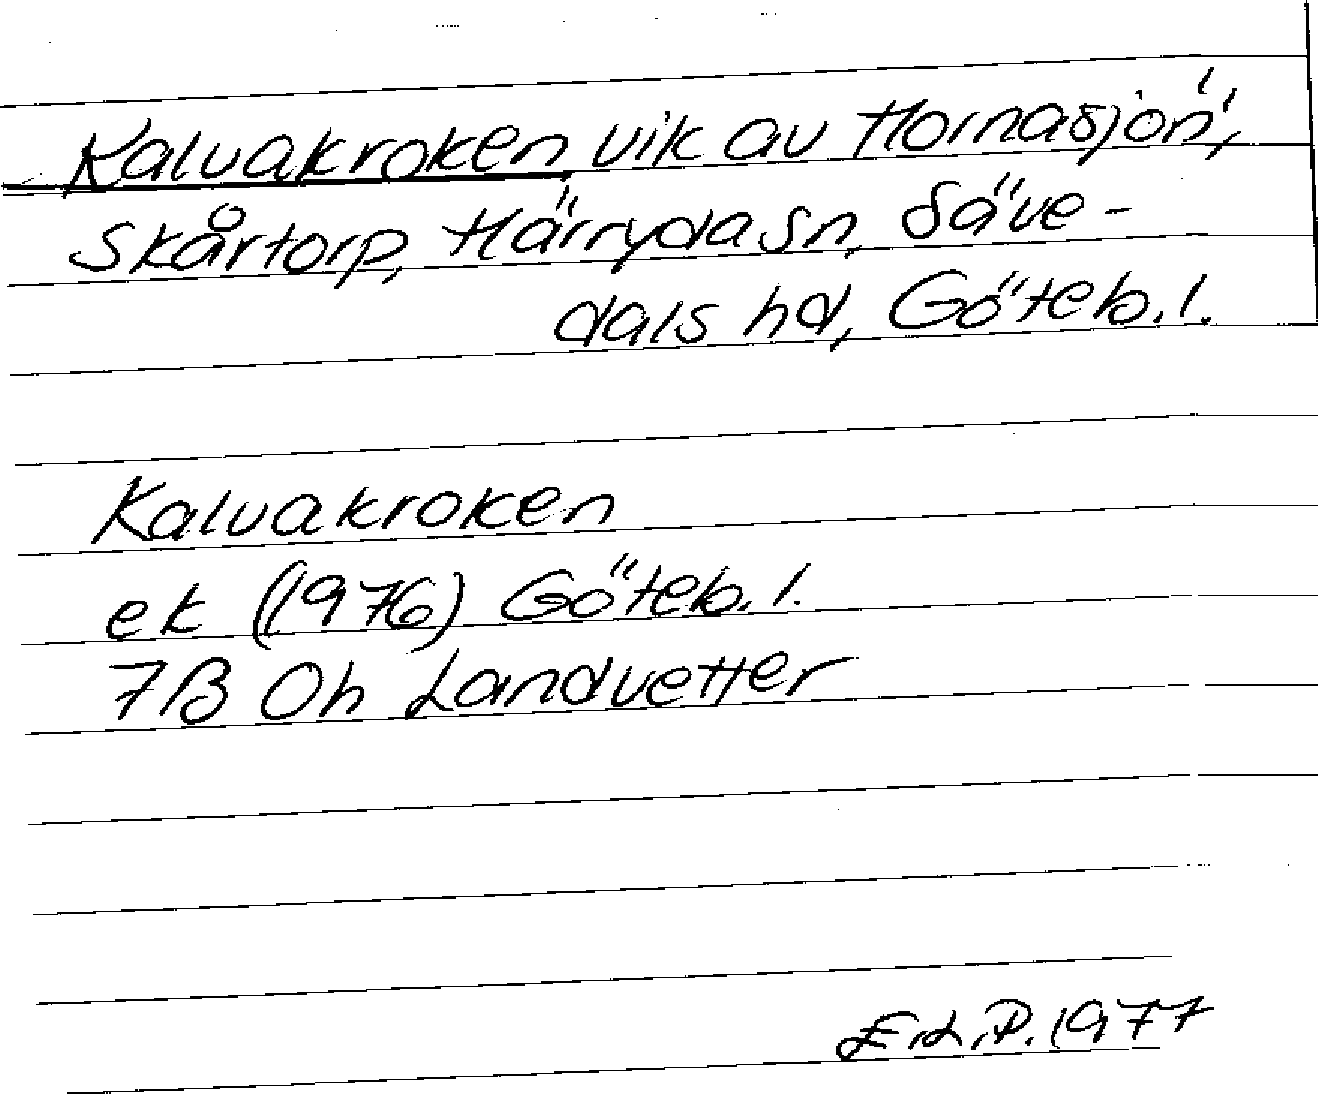 Kalvakroken vik av Hornasjön,
Skårtorp, Härryda sn, Säve-
dals hd, Göteb. l.
Kalvakroken
ek (1976) Göteb. l.
7B 0h Landvetter
E.L.P. 1977